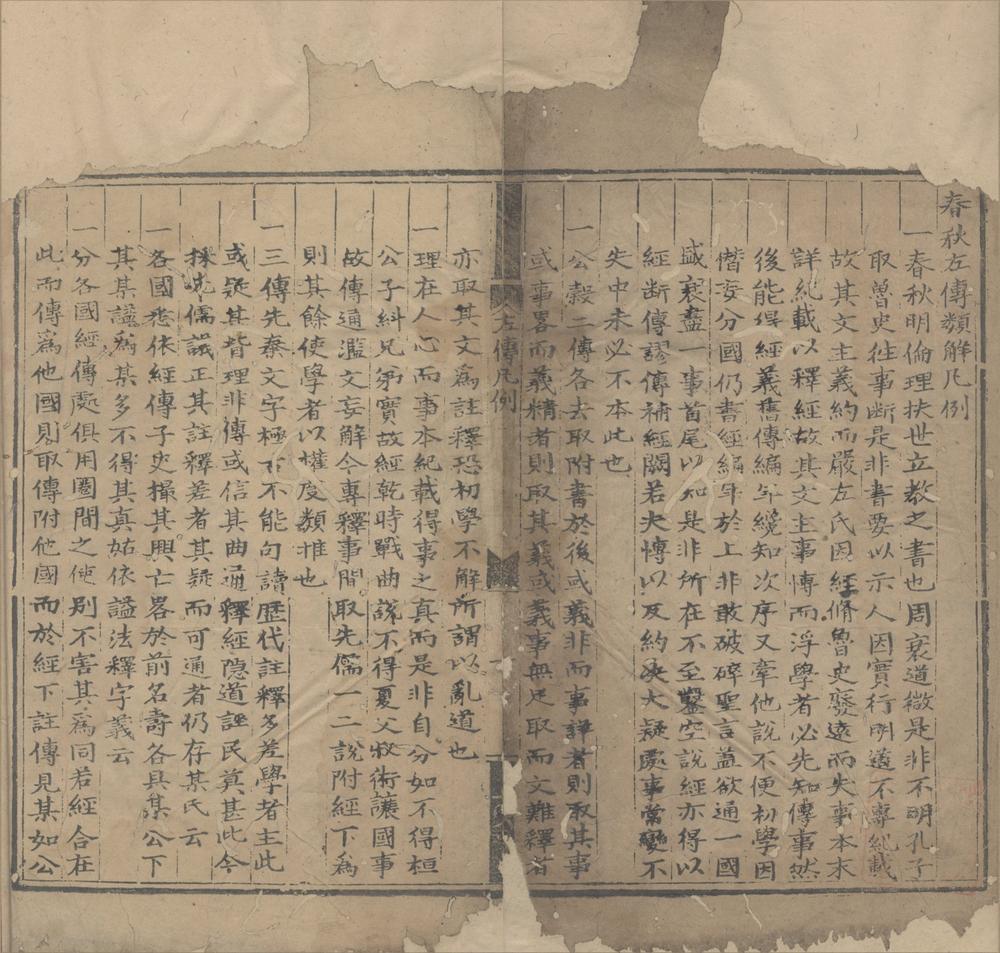 春秋左傳類解凡例
一春秋明倫理扶世立教之書也周衰道微是非不明孔子
取魯史徃事断是非書要以示人因實行明道不專紀載
故其文主義約而嚴左氏因經脩魯史廢遠而失事本末
詳紀載以釋經故其文主事博而浮學者必先知傳事然
後能得經義舊傳編年纔知次序又牽他說不便初學因
僭妄分國仍書經編年於上非敢破碎聖言葢欲通一國
盛衰盡一事首尾以知是非所在不至鑿空說經亦得以
經断傳謬傳補經闕若夫博以及約决大疑處事常變不
失中未必不本此也
一公榖二傳各去取附書於後或義非而事詳者則取其事
或事畧而義精者則取其義或義事無足取而文難釋者
左傳凡例
亦取其文爲註釋恐初學不解所謂以亂道也
一理在人心而事本紀載得事之真而是非自分如不得桓
公子糾兄弟實故經乾時戰曲說不得夏父叔術讓國事
故傳通濫文妄解今專釋事間取先儒一二說附經下爲
則其餘使學者以權度類推也
一三傳先秦文字極古不能句讀歷代註釋多差學者主此
或疑其背理非傳或信其曲通釋經隱道誣民莫甚此今
採先儒議正其註釋差者其疑而可通者仍存某氏云
一各國悉依經傳子史撮其興亡畧於前名壽各具某公下
其某謚爲某多不得其真姑依謚法釋字義云
一分各國經傳處俱用圈間之使別不害其爲同若經合在
此而傳爲他國則取傳附他國而於經下註傳見某如公